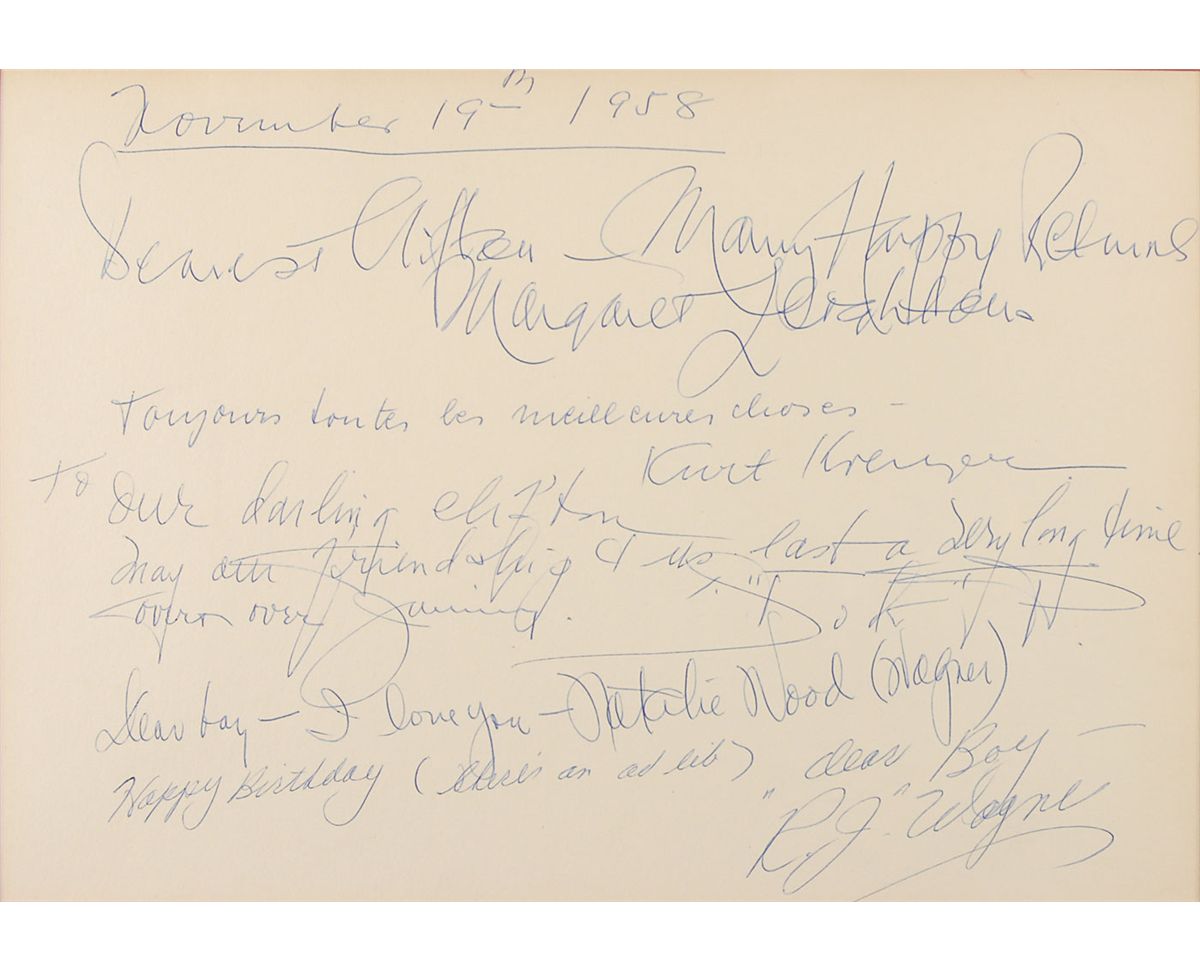 November 19th 1958
Dearest Clifton — Many Happy Returns
Margaret Leighton.
Toujours toutes les meilleures choses —
Kurt
To Our darling Clifton
may our friendship & us last a very long time
over & over
Dear boy — I love you — Natalie Wood (Wagner)
Happy Birthday (there's an ad lib) dear Boy —
"R.J." Wagner